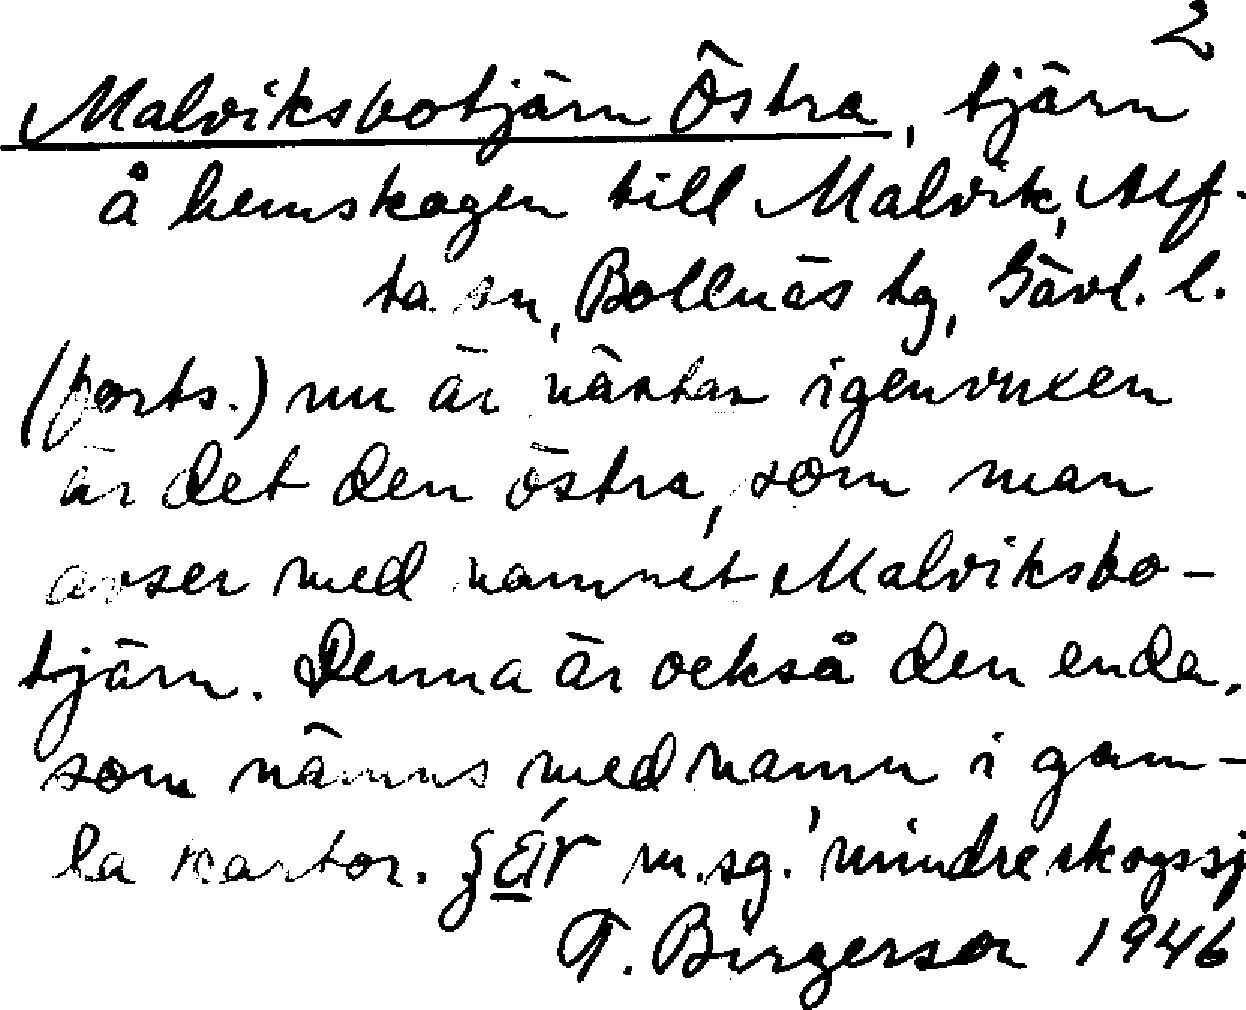 2
Malviksbotjärn Östra, tjärn
å hemskogen till Malvik, Alf-
ta sn, Bollnäs tg, Gävl. l.
(forts.) nu är nästan igenvuxen
är det den östra, som man
avser med namnet Malviksbo-
tjärn. Denna är också den enda,
som nämns med namn i gam-
la kartor. m.sg. 'mindre skogssj
T. Birgerson 1946